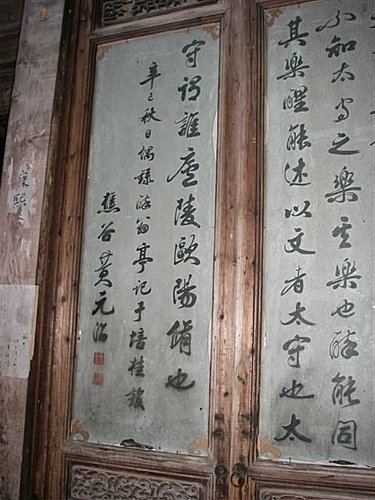 不知太守之樂其樂也醉能同
其樂醒能述以文者太守也太
守謂誰廬陵歐陽脩也
辛巳秋日偶錄醉翁亭記于培桂
樵谷黃元治